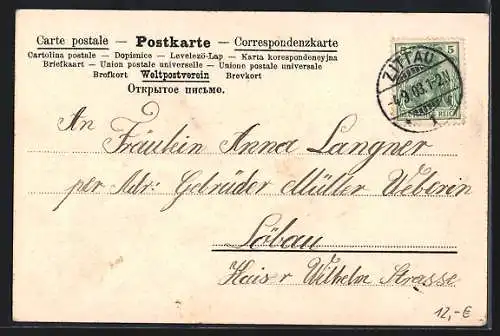 Carte postale — Postkarte — Correspondenzkarte
Cartolina postale — Dopisnice — Levelező-Lap — Karta korespondencyjna
Briefkaart — Union postale universelle — Unione postale universale
Brefkort Weltpostverein Brevkort
Открытое письмо.
5 5
ZITTAU
9 03. 1-2N
REICH
An
Fräulein Anna Langner
per Adr: Gebrüder Müller Weberin
Löbau
Kaiser Wilhelm Strasse
12,-€